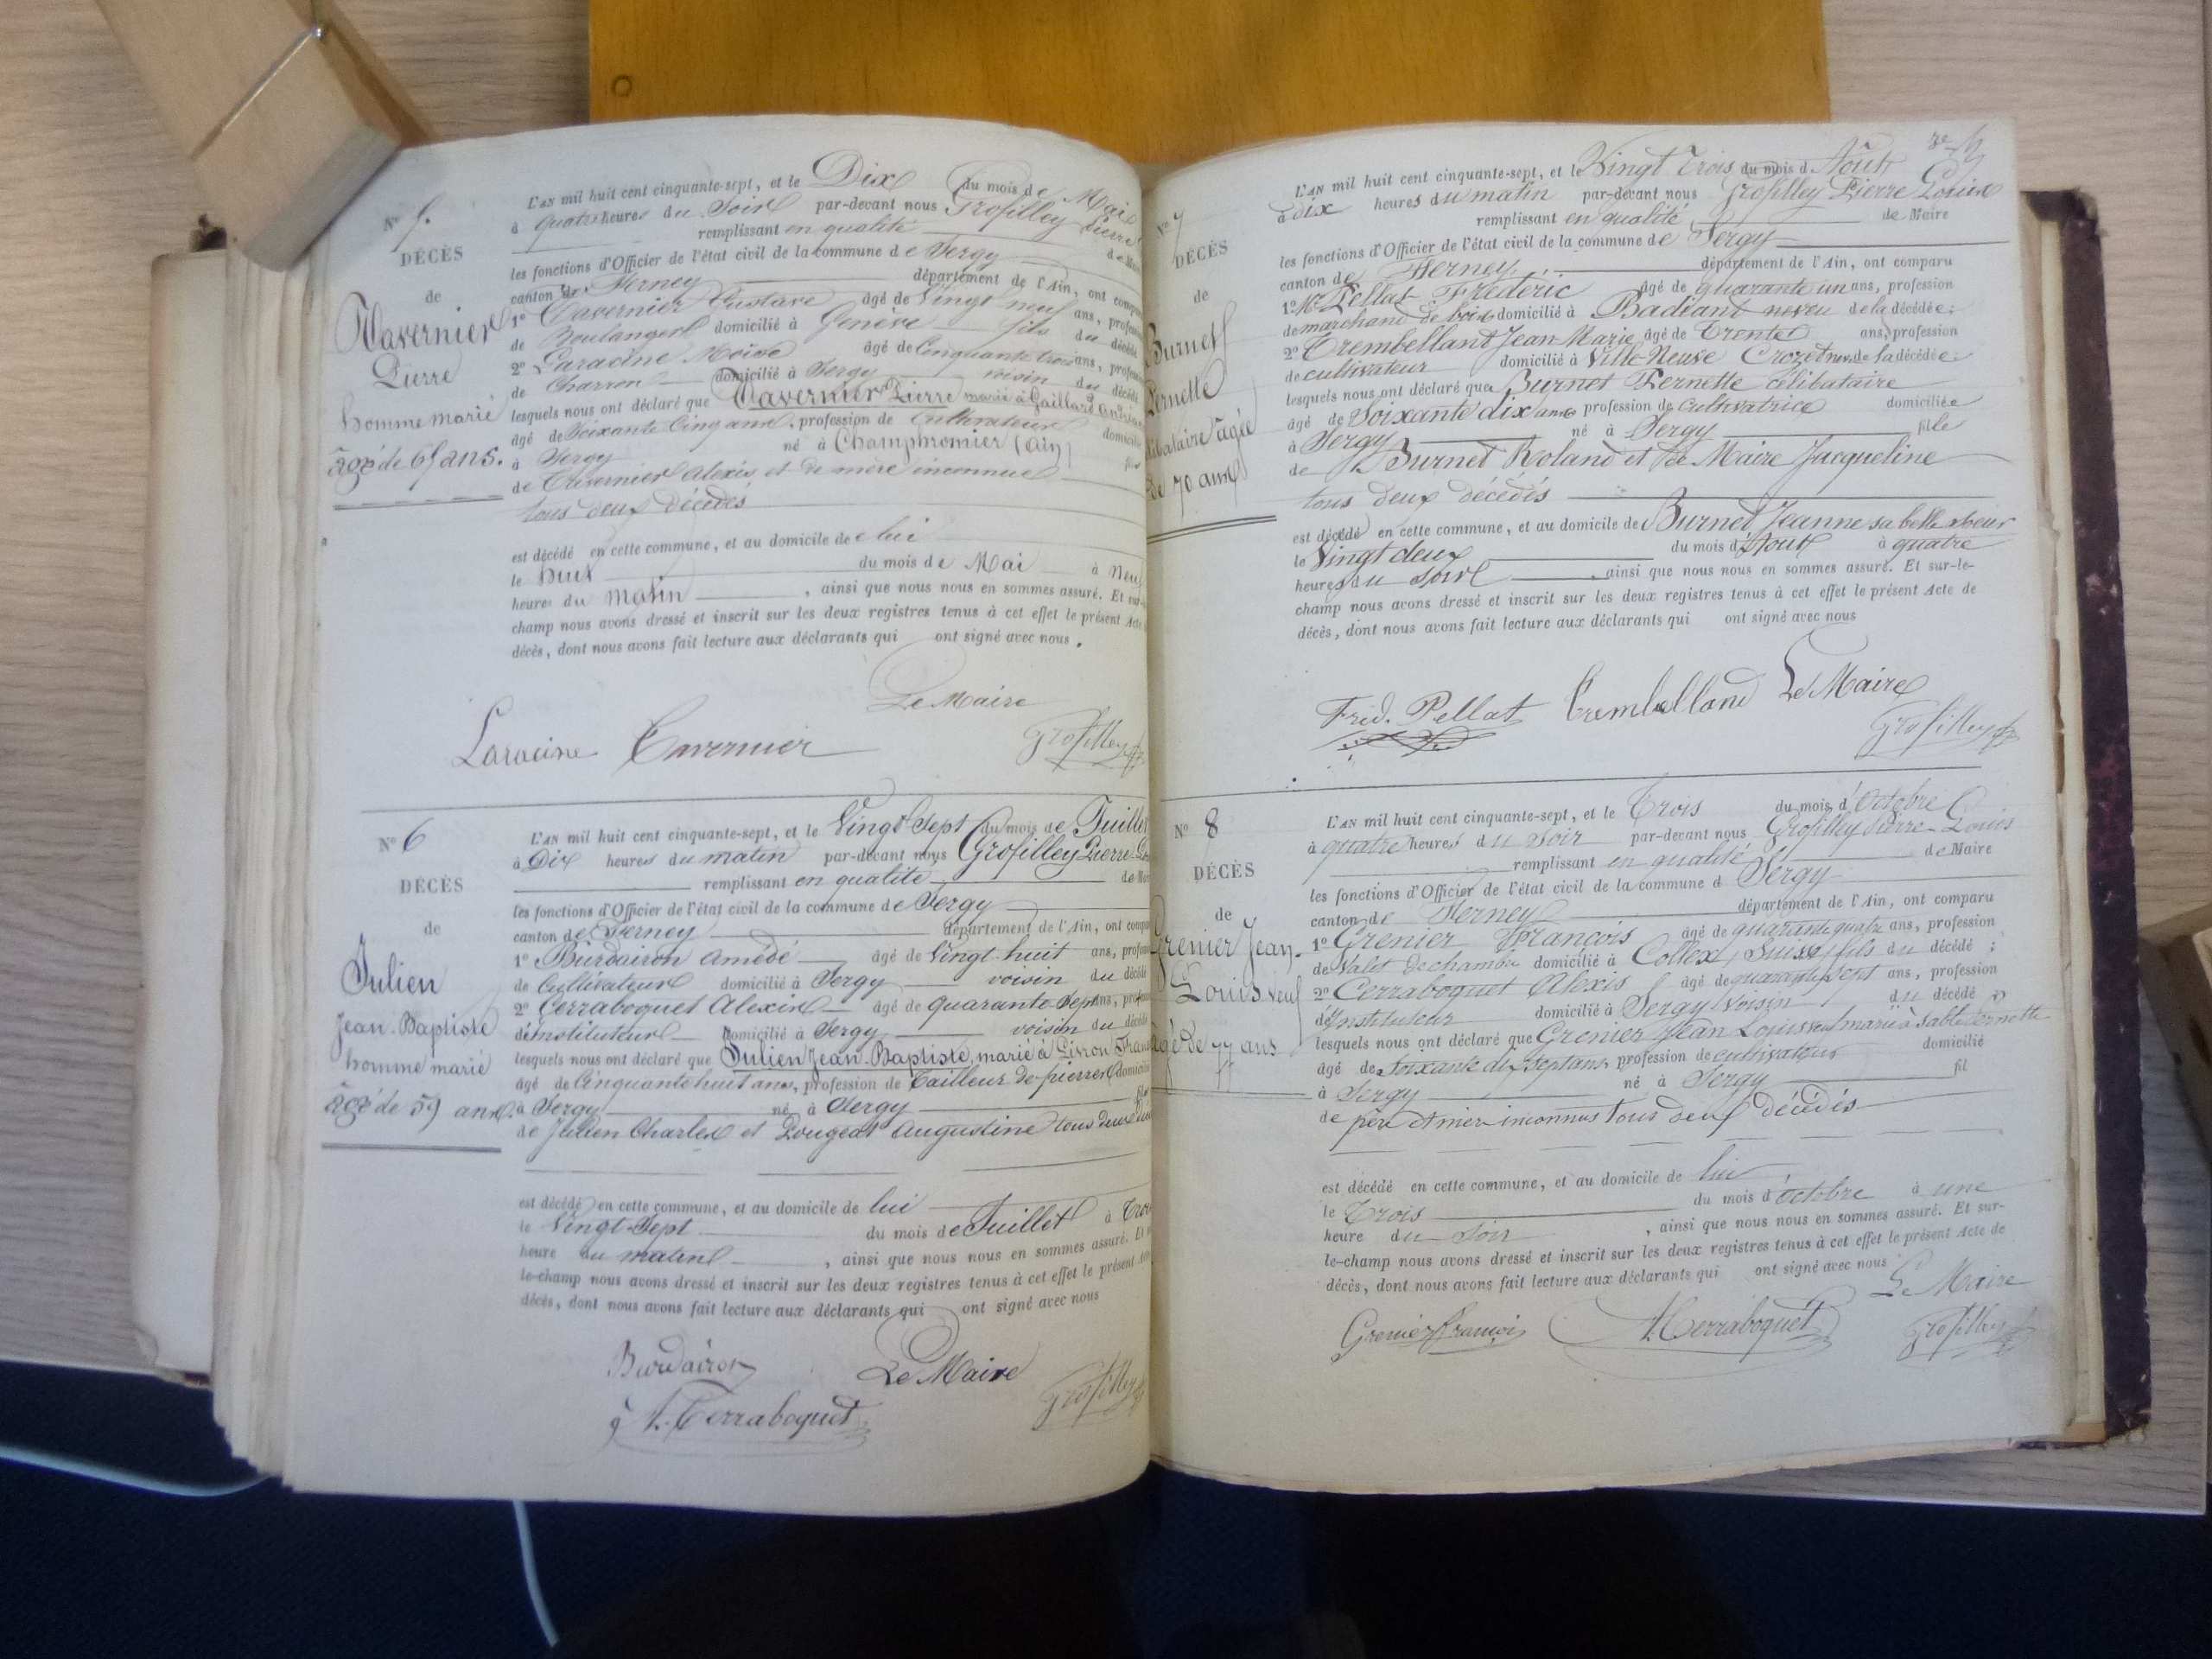 N° 5.
DÉCÈS
de
Tavernier
Pierre
homme marié
âgé de 65 ans.
L'AN mil huit cent cinquante-sept, et le Dix du mois de Mai
à quatre heures du Soir par-devant nous Grosfilley Pierre
remplissant en qualité de Maire
les fonctions d'Officier de l'état civil de la commune de Sergy
canton de Ferney département de l'Ain, ont comparu
1° Tavernier Gustave âgé de Vingt neuf ans, profession
de Boulanger domicilié à Genève fils du décédé
2° Laracine Moïse âgé de Cinquante trois ans, profession
de Charron domicilié à Sergy voisin du décédé
lesquels nous ont déclaré que Tavernier Pierre marié à Gaillard
âgé de Soixante Cinq ans, profession de Cultivateur domicilié
à Sergy né à Champfromier (ain)
de Tavernier Alexis et de mère inconnue
tous deux décédés
est décédé en cette commune, et au domicile de lui
le huit du mois de Mai à Neuf
heures du Matin, ainsi que nous nous en sommes assuré. Et sur-
champ nous avons dressé et inscrit sur les deux registres tenus à cet effet le présent Acte
décès, dont nous avons fait lecture aux déclarants qui ont signé avec nous.
Le Maire
Laracine Tavernier Grosfilley
N° 6
DÉCÈS
de
Julien
Jean-Baptiste
homme marié
âgé de 59 ans.
L'AN mil huit cent cinquante-sept, et le Vingt Sept du mois de Juillet
à Dix heures du matin par-devant nous Grosfilley Pierre
remplissant en qualité de
les fonctions d'Officier de l'état civil de la commune de Sergy
canton de Ferney département de l'Ain, ont comparu
1° Burdairon Amédé âgé de Vingt huit ans, profession
de Cultivateur domicilié à Sergy voisin du décédé
2° Cerraboquet Alexis âgé de quarante Sept ans, profession
d'instituteur domicilié à Sergy voisin du décédé
lesquels nous ont déclaré que Julien Jean-Baptiste, marié à Livron
âgé de Cinquante huit ans, profession de Tailleur de pierres domicilié
à Sergy né à Sergy fils
de Julien Charles et Pougeat Augustine tous deux
est décédé en cette commune, et au domicile de lui
le Vingt-Sept du mois de Juillet à Trois
heure du matin, ainsi que nous nous en sommes assuré. Et
le-champ nous avons dressé et inscrit sur les deux registres tenus à cet effet le présent
décès, dont nous avons fait lecture aux déclarants qui ont signé avec nous
Burdairon Le Maire
A. Cerraboquet Grosfilley
N° 7
DÉCÈS
de
Burnet
Pernette
célibataire âgée
de 70 ans
L'AN mil huit cent cinquante-sept, et le Vingt Trois du mois d'Août
à dix heures du matin par-devant nous Grosfilley Pierre Louis
remplissant en qualité de Maire
les fonctions d'Officier de l'état civil de la commune de Sergy
canton de Ferney département de l'Ain, ont comparu
1° Mr Pellat Frédéric âgé de quarante un ans, profession
de marchand de bois domicilié à Badéant neveu de la décédée;
2° Trembelland Jean-Marie âgé de Trente ans, profession
de cultivateur domicilié à Ville-Neuve Crozet nev. de la décédée;
lesquels nous ont déclaré que Burnet Pernette célibataire
âgé de Soixante dix ans profession de Cultivatrice domiciliée
à Sergy né à Sergy fille
de Burnet Roland et de Maire Jacqueline
tous deux décédés
est décédé en cette commune, et au domicile de Burnet Jeanne sa belle soeur
le Vingt deux du mois d'Août à quatre
heures du Soir, ainsi que nous nous en sommes assuré. Et sur-le-
champ nous avons dressé et inscrit sur les deux registres tenus à cet effet le présent Acte de
décès, dont nous avons fait lecture aux déclarants qui ont signé avec nous
Fréd. Pellat Trembelland Le Maire
Grosfilley
N° 8
DÉCÈS
de
Grenier Jean-
Louis veuf
âgé de 77 ans
L'AN mil huit cent cinquante-sept, et le Trois du mois d'Octobre
à quatre heures du Soir par-devant nous Grosfilley Pierre-Louis
remplissant en qualité de Maire
les fonctions d'Officier de l'état civil de la commune d Sergy
canton de Ferney département de l'Ain, ont comparu
1° Grenier François âgé de quarante quatre ans, profession
de Valet de chambre domicilié à Collex (Suisse) fils du décédé;
2° Cerraboquet Alexis âgé de quarante Sept ans, profession
d'Instituteur domicilié à Sergy Voisin du décédé
lesquels nous ont déclaré que Grenier Jean Louis veuf marié à Sable Pernette
âgé de Soixante dix Sept ans profession de cultivateur domicilié
à Sergy né à Sergy fil
de père et mère inconnus tous deux décédés
est décédé en cette commune, et au domicile de lui
le Trois du mois d'octobre à une
heure du Soir, ainsi que nous nous en sommes assuré. Et sur-
le-champ nous avons dressé et inscrit sur les deux registres tenus à cet effet le présent Acte de
décès, dont nous avons fait lecture aux déclarants qui ont signé avec nous
Le Maire
Grenier françois A. Cerraboquet Grosfilley